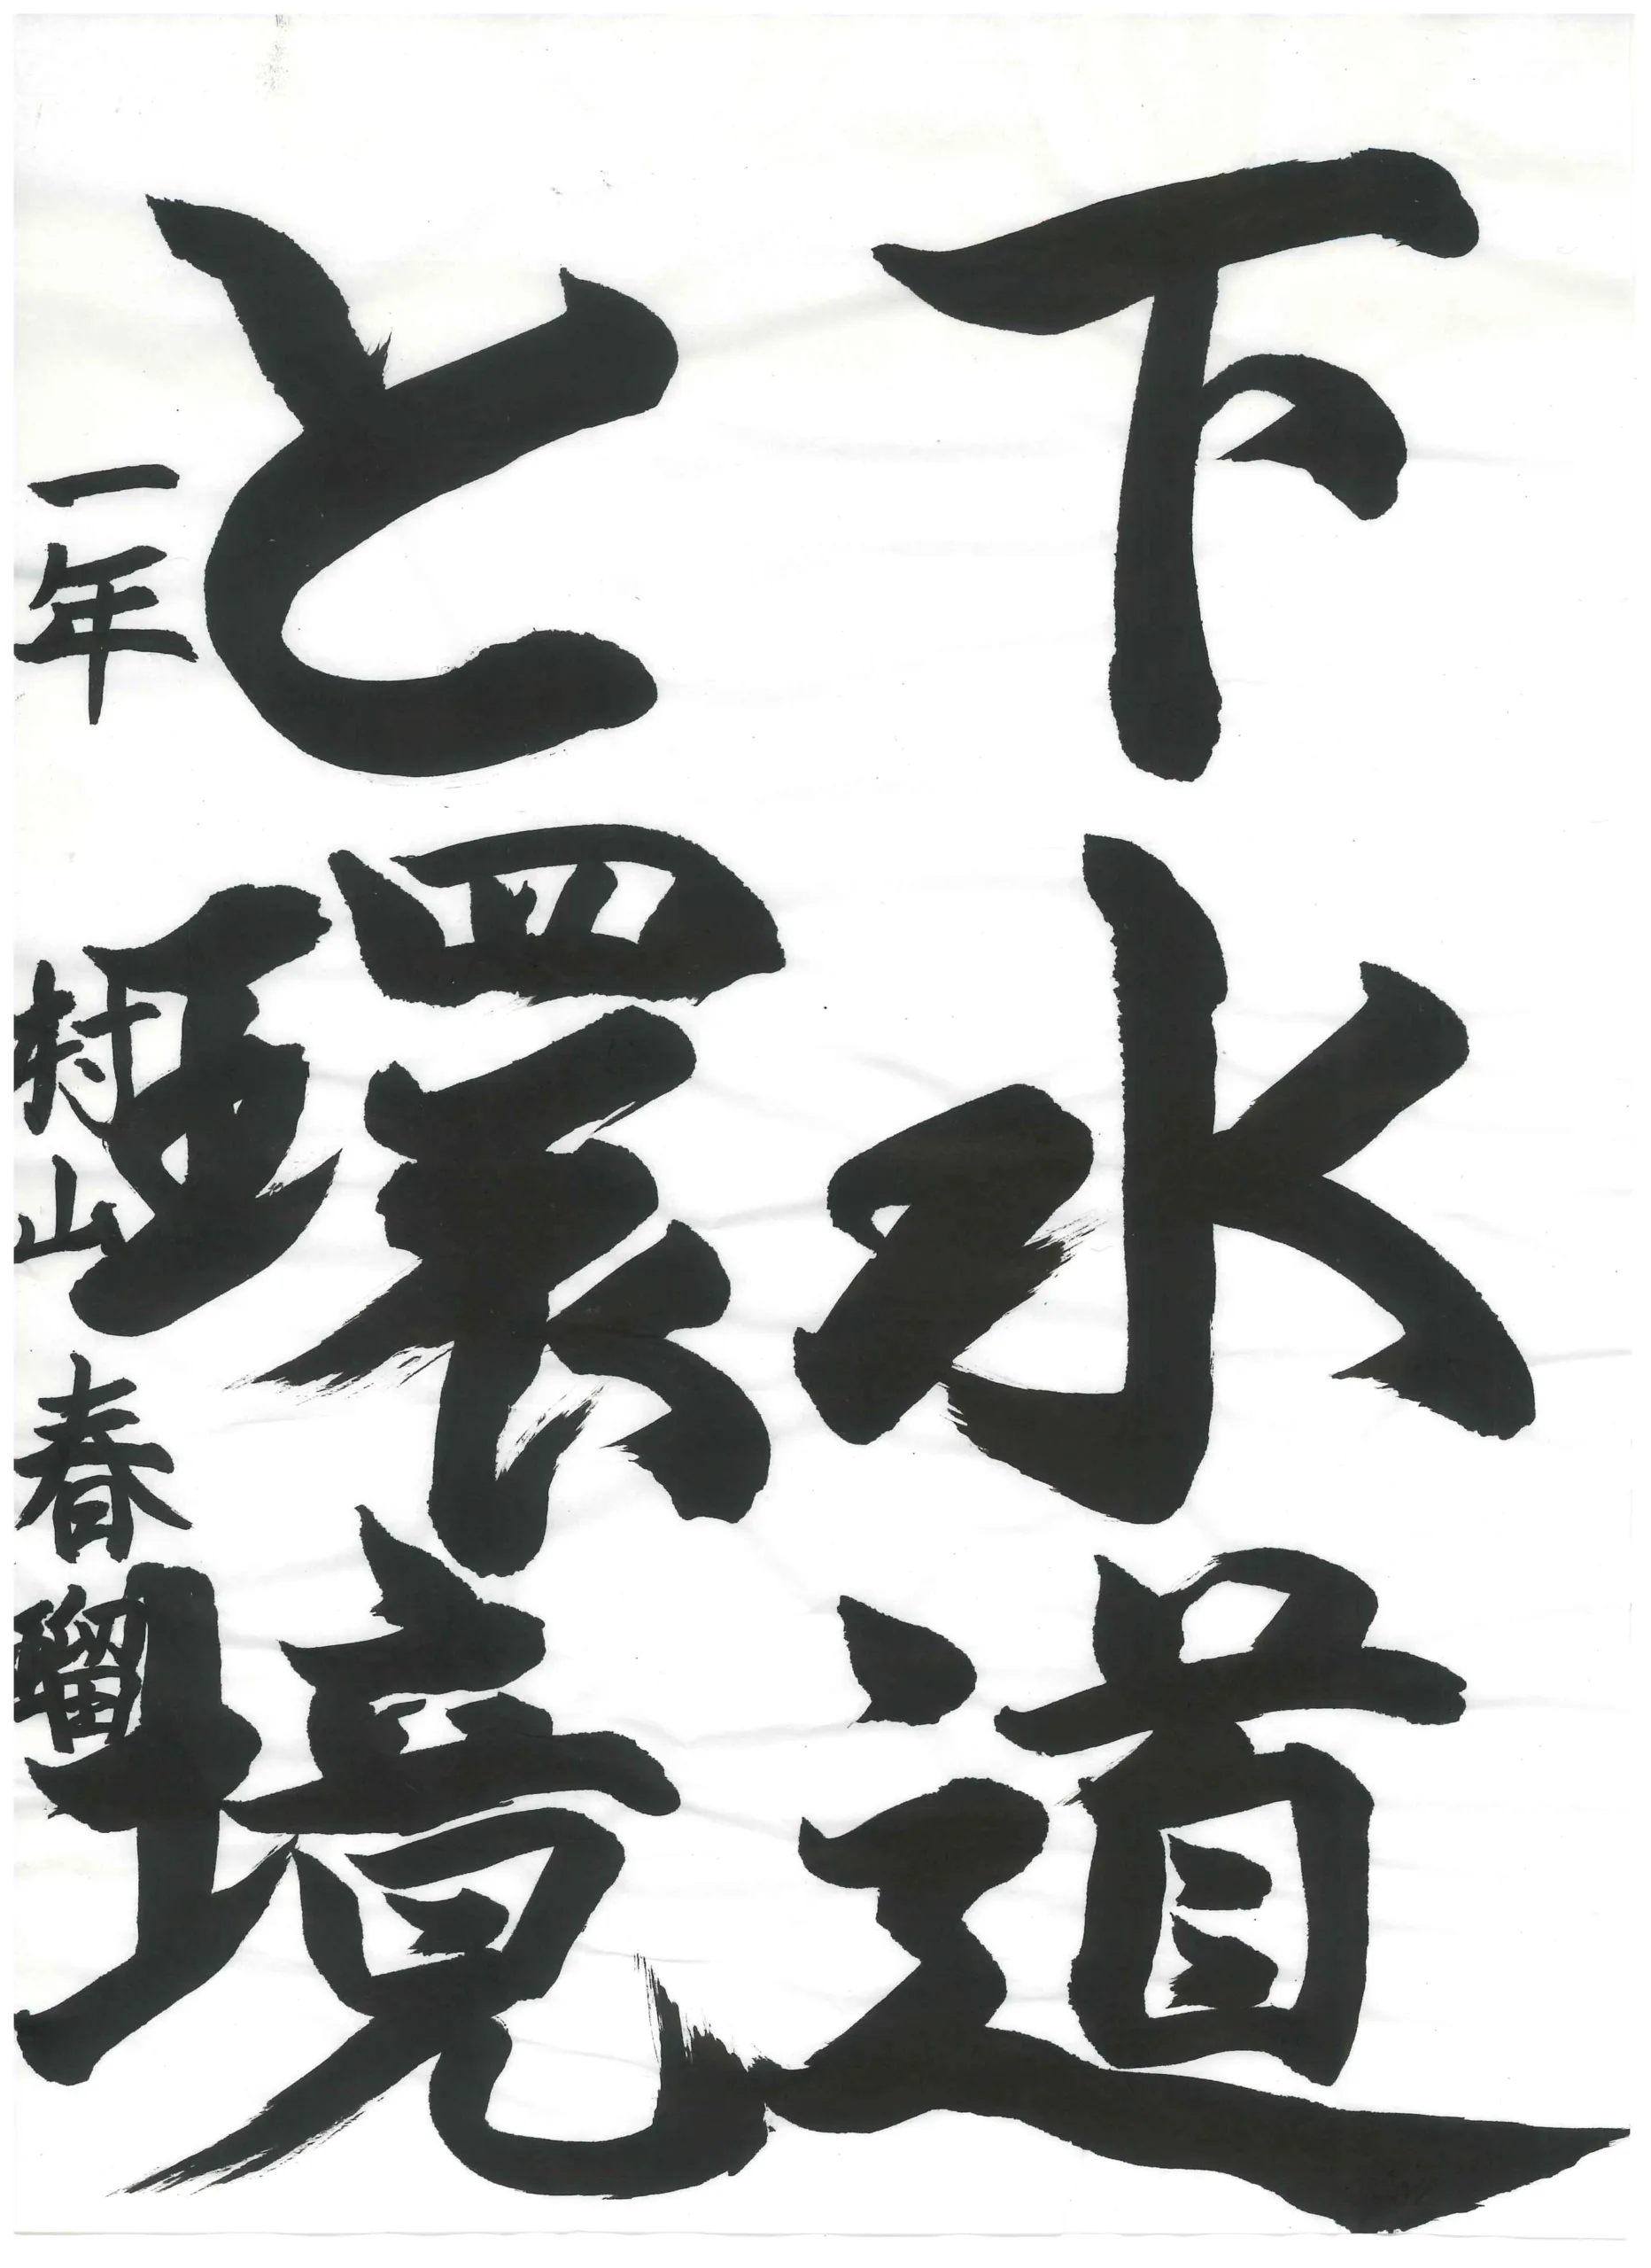 下水道
と環境
一年 村山春瑠